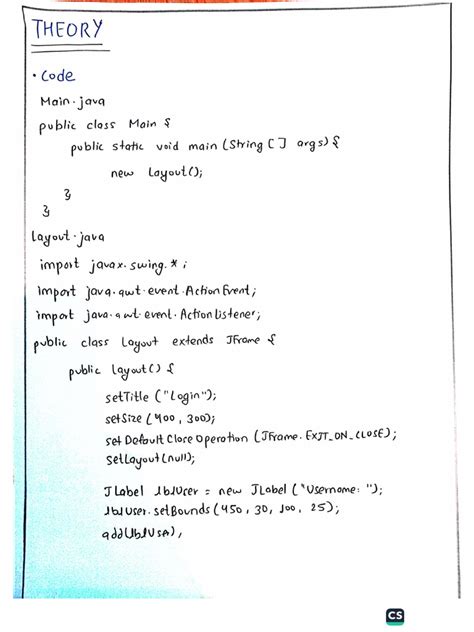 THEORY
• Code
Main.java
public class Main {
public static void main (String [] args) {
new Layout();
}
}
Layout.java
import javax.swing.*;
import java.awt.event.ActionEvent;
import java.awt.event.ActionListener;
public class Layout extends JFrame {
public layout() {
setTitle ("Login");
setSize (400, 300);
set Default Close Operation (JFrame.EXIT_ON_CLOSE);
SetLayout (null);
JLabel lblUser = new JLabel ("Username: ");
lblUser.setBounds (450, 30, 100, 25);
CS